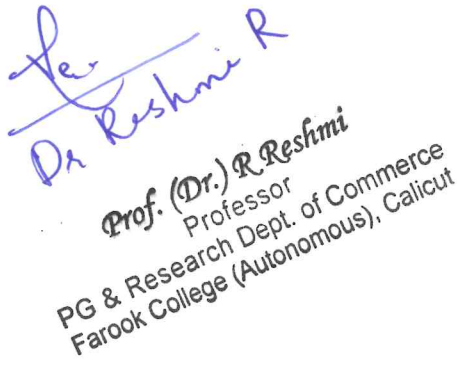 Dr Reshmi R
Prof. (Dr.) R Reshmi
Professor
PG & Research Dept. of Commerce
Farook College (Autonomous), Calicut